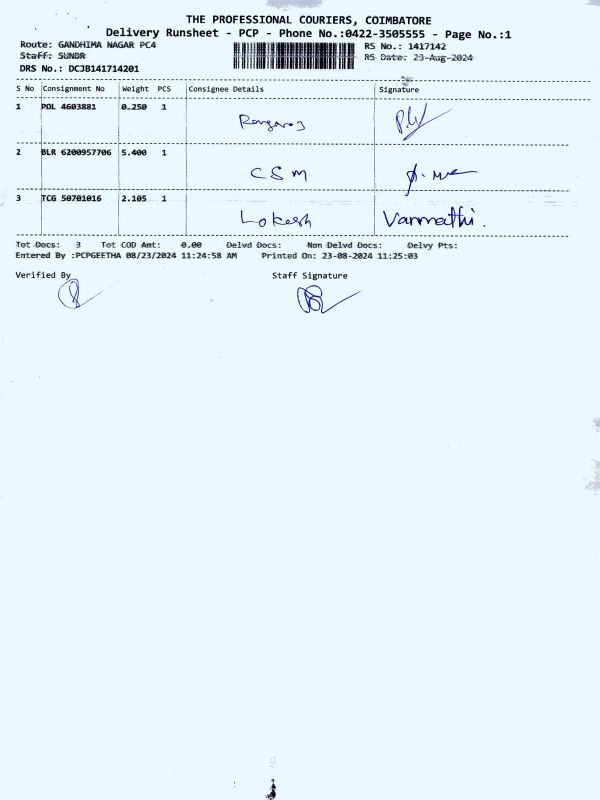 THE PROFESSIONAL COURIERS, COIMBATORE
Delivery Runsheet - PCP - Phone No.:0422-3505555 - Page No.:1
Route: GANDHIMA NAGAR PC4 RS No.: 1417142
Staff: SUNDR RS Date: 23-Aug-2024
DRS No.: DCJB141714201
S No Consignment No Weight PCS Consignee Details Signature
1 POL 4603881 0.250 1
Rangaraj
2 BLR 6200957706 5.400 1
CSM
3 TCG 50701016 2.105 1
Lokesh Vanmathi.
Tot Docs: 3 Tot COD Amt: 0.00 Delvd Docs: Non Delvd Docs: Delvy Pts:
Entered By :PCPGEETHA 08/23/2024 11:24:58 AM Printed On: 23-08-2024 11:25:03
Verified By Staff Signature